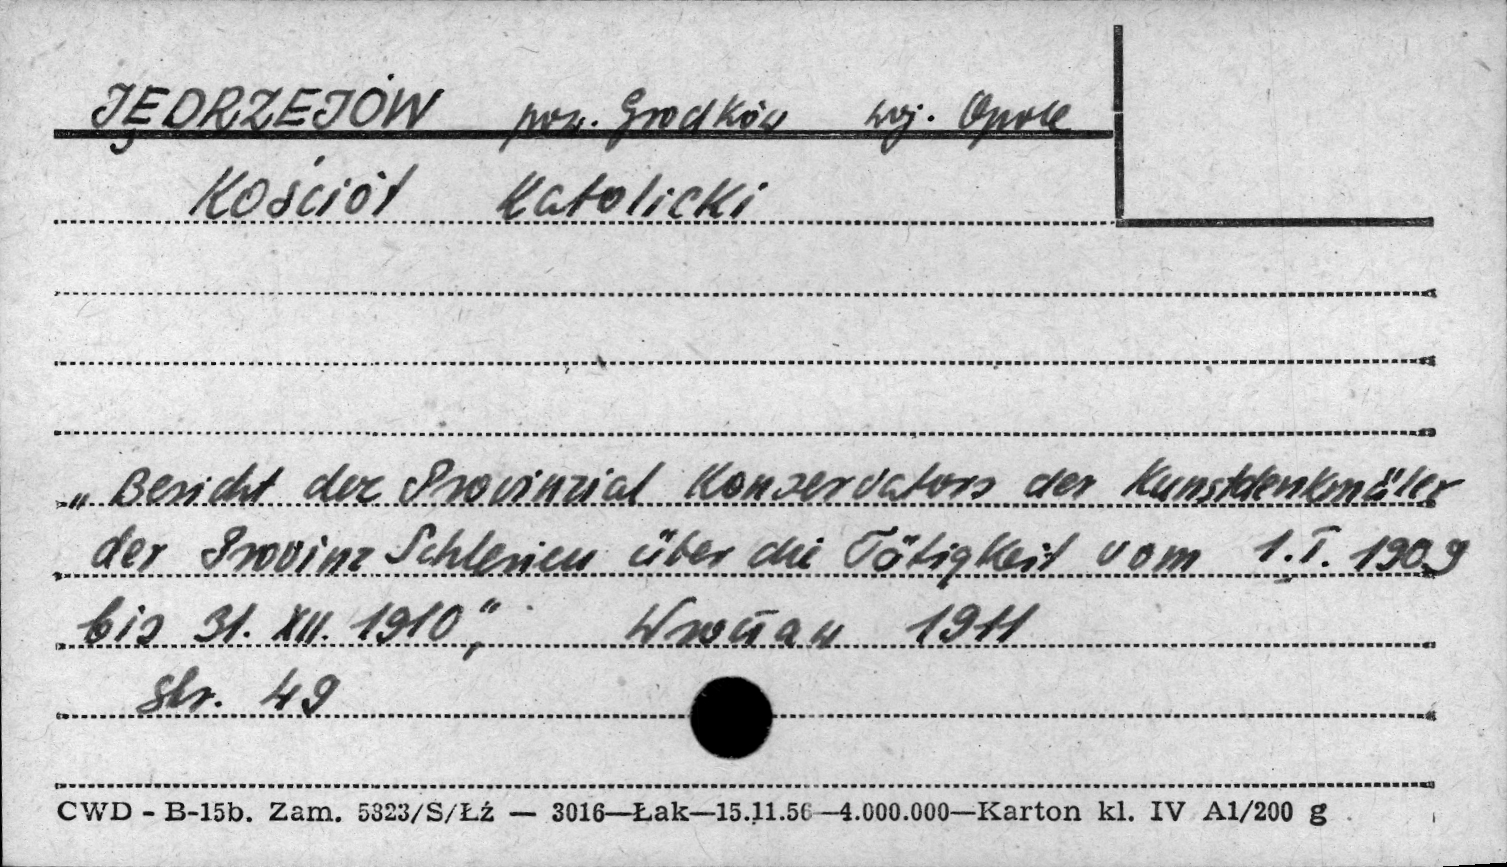 JĘDRZEJÓW pow. Grodków woj. Opole
Kościół Katolicki
„Bericht der Provinzial Konservators der Kunstdenkmäler
der Provinz Schlesien über die Tätigkeit vom 1.I. 1909
bis 31. XII. 1910", Wrocław 1911
str. 49
CWD - B-15b. Zam. 5323/S/Łź — 3016—Łak—15.11.56—4.000.000—Karton kl. IV A1/200 g